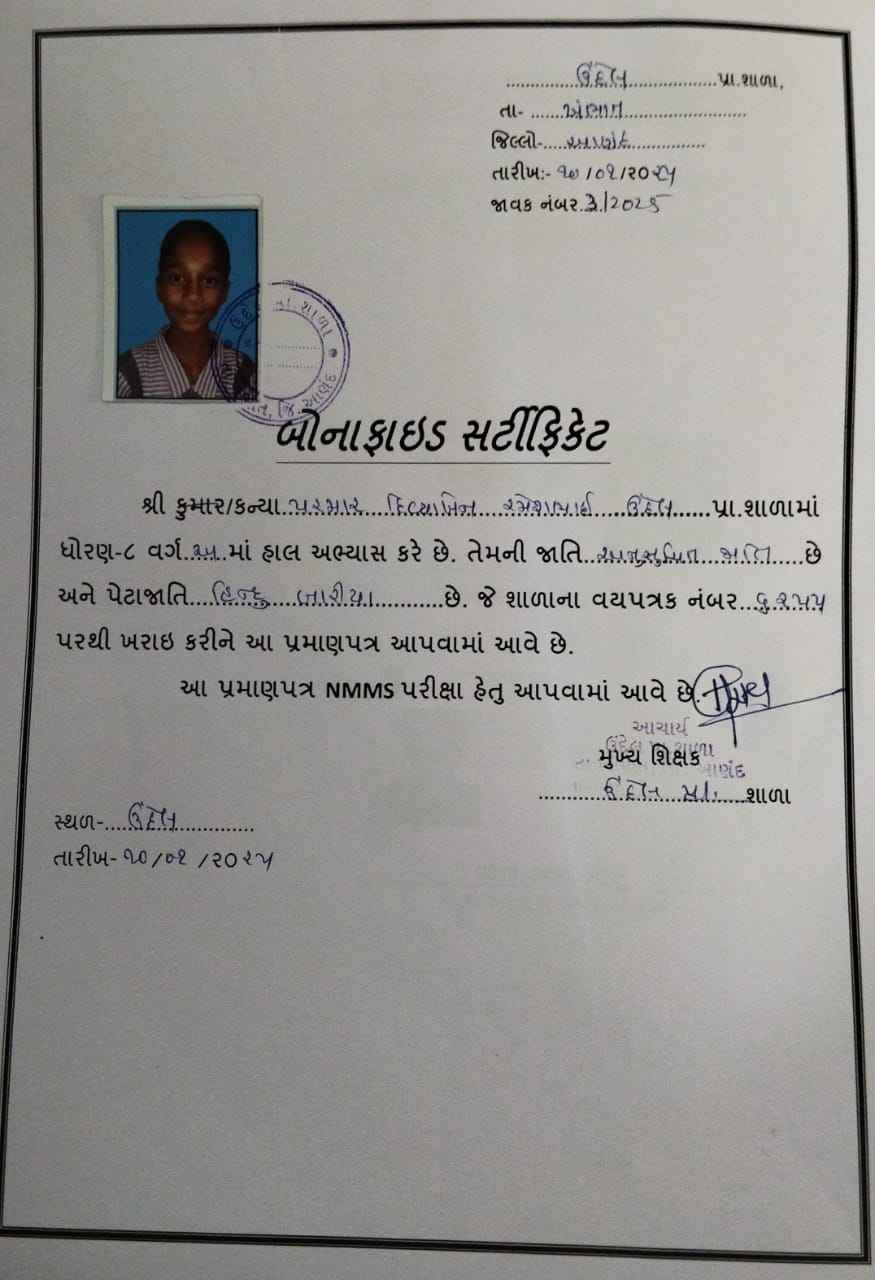 ઉંદેલ પ્રા.શાળા,
તા- ખંભાત
જિલ્લો- આણંદ
તારીખ:- ૧૦/૦૧/૨૦૨૫
જાવક નંબર. 3/2025
ઉંદેલ પ્રા.શાળા
જિ. આણંદ
બોનાફાઇડ સર્ટીફિકેટ
શ્રી કુમાર/કન્યા પરમાર દિવ્યાબેન રમેશભાઈ ઉંદેલ પ્રા.શાળામાં
ધોરણ-૮ વર્ગ અ માં હાલ અભ્યાસ કરે છે. તેમની જાતિ અનુસુચિત જાતિ છે
અને પેટાજાતિ હિન્દુ છે. જે શાળાના વયપત્રક નંબર
પરથી ખરાઇ કરીને આ પ્રમાણપત્ર આપવામાં આવે છે.
આ પ્રમાણપત્ર NMMS પરીક્ષા હેતુ આપવામાં આવે છે.
આચાર્ય
ઉંદેલ પ્રા. શાળા
મુખ્ય શિક્ષક
આણંદ
ઉંદેલ પ્રા. શાળા
સ્થળ- ઉંદેલ
તારીખ- ૧૦/૦૧/૨૦૨૫